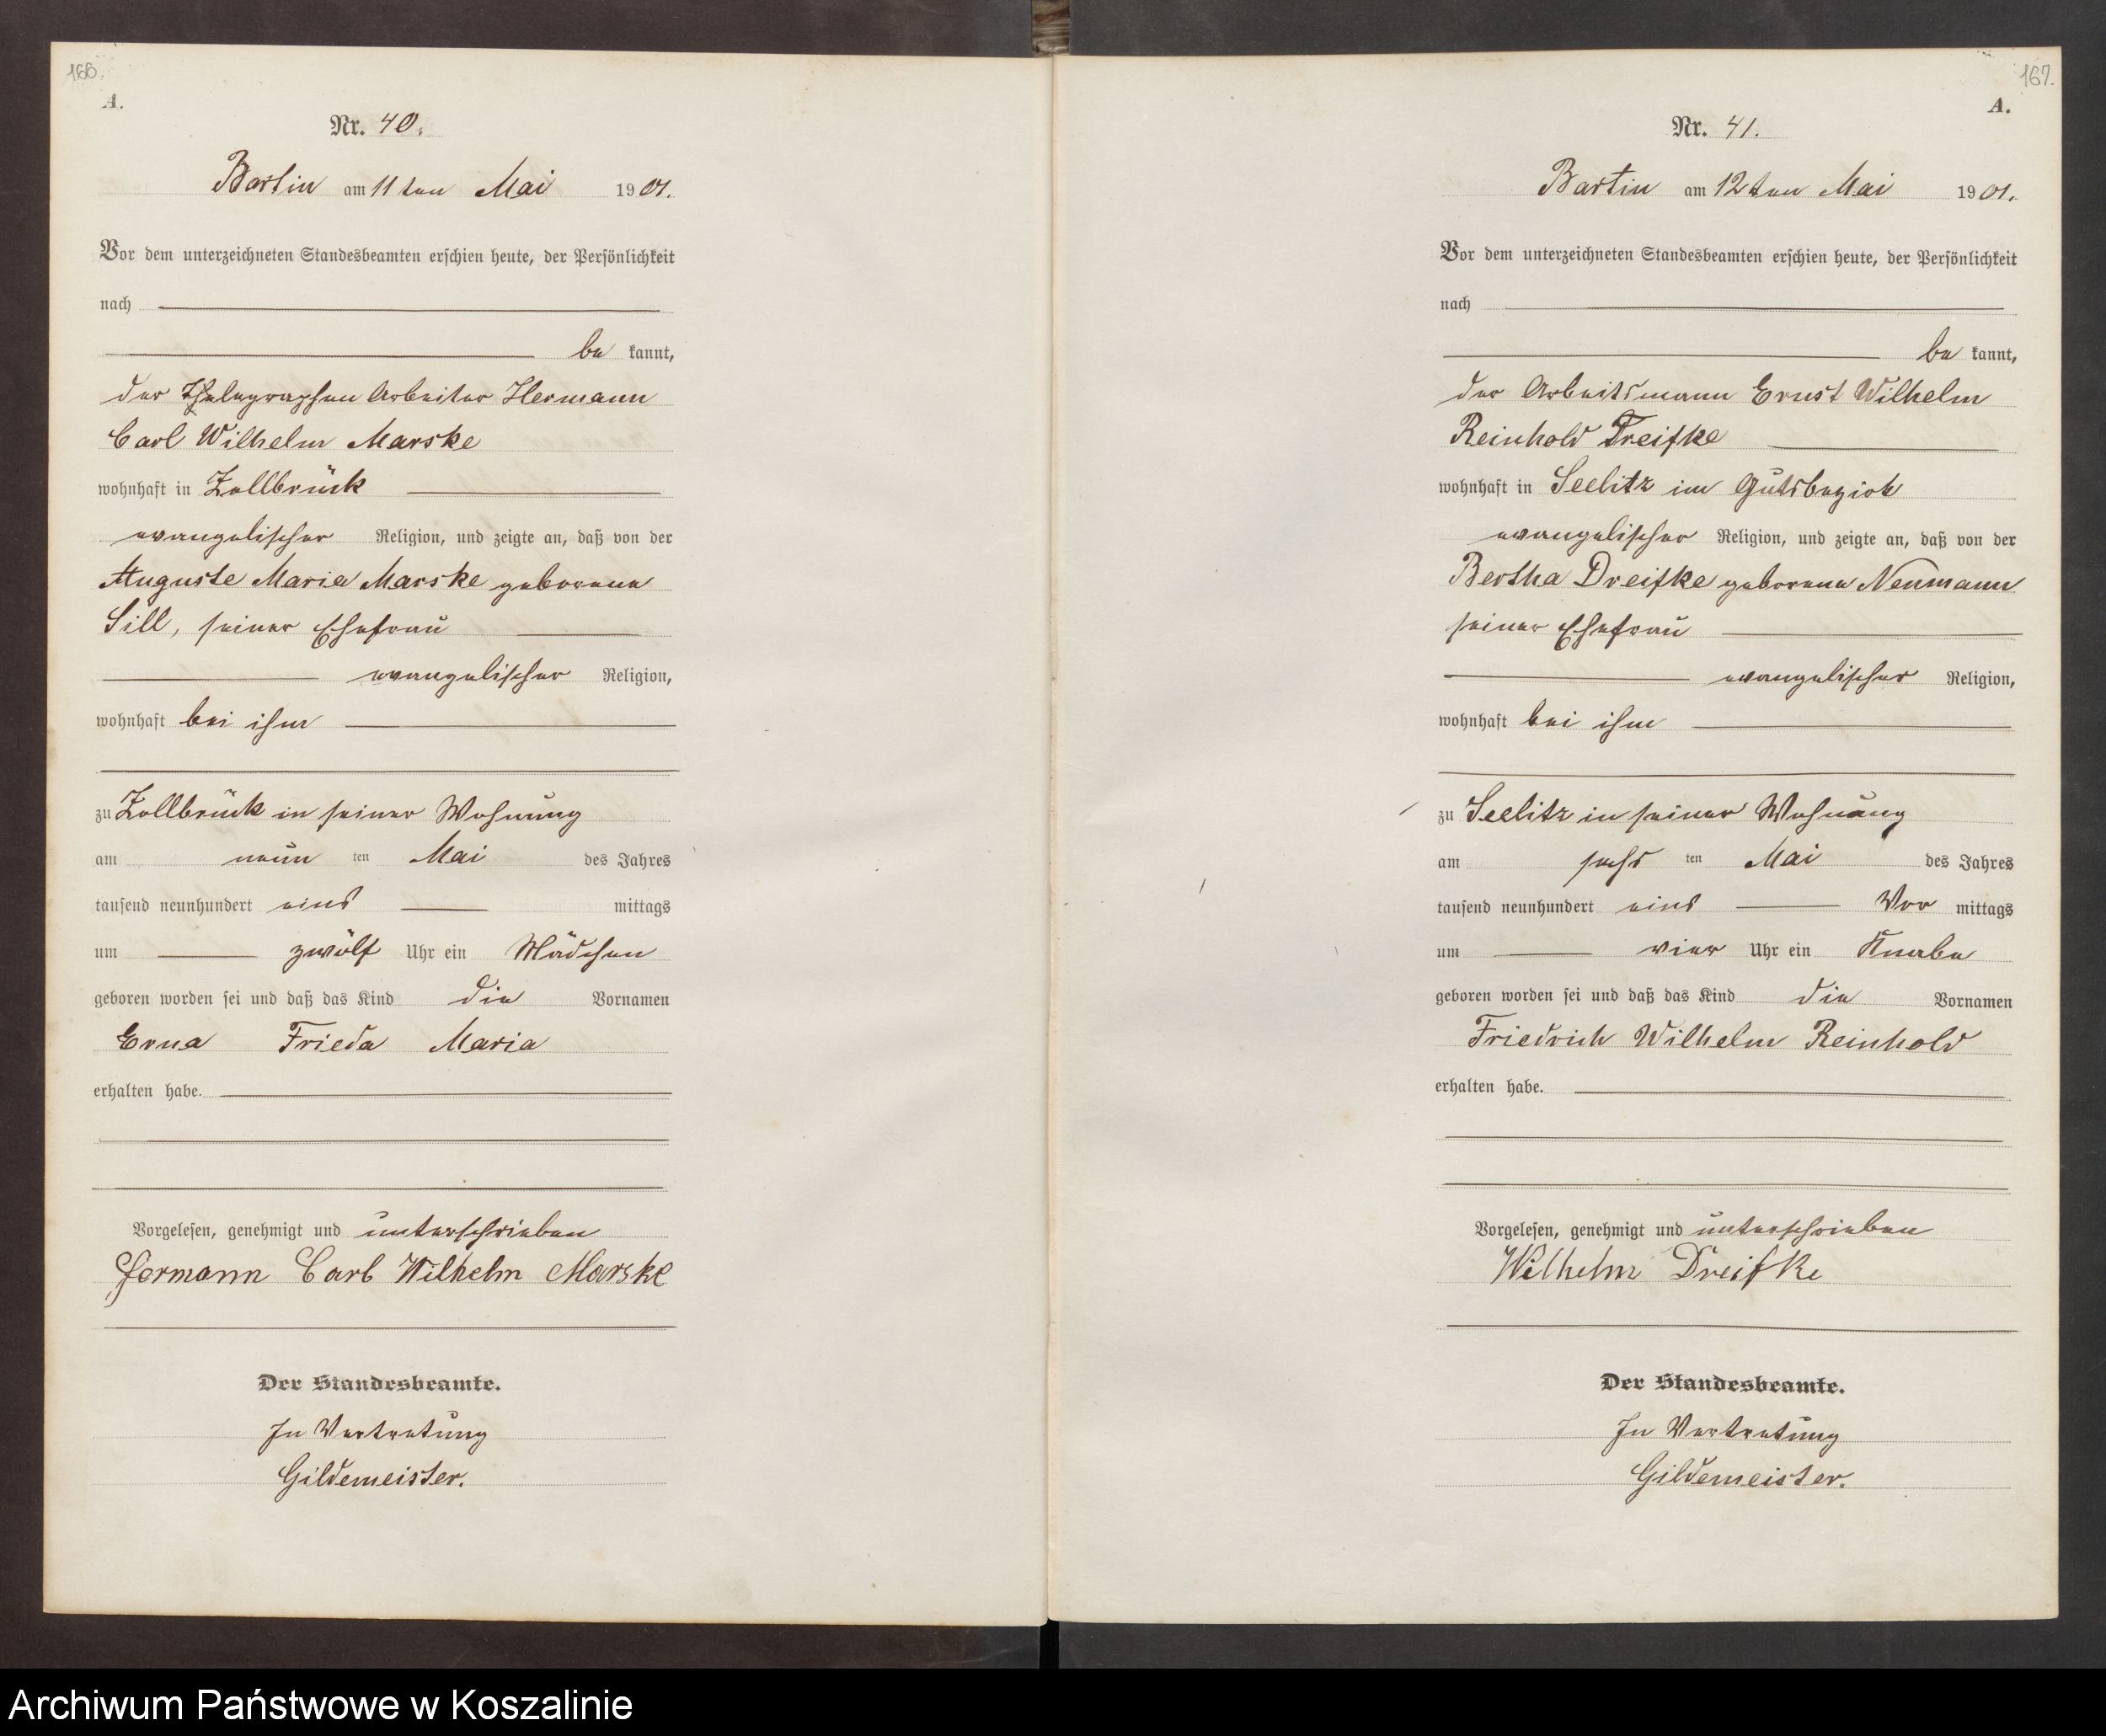 166.
A.
Nr. 40.
Bartin am 11ten Mai 1901.
Vor dem unterzeichneten Standesbeamten erschien heute, der Persönlichkeit
nach
be kannt,
der Thelegraphen Arbeiter Hermann
Carl Wilhelm Marske
wohnhaft in Zollbrück
evangelischer Religion, und zeigte an, daß von der
Auguste Marie Marske geborene
Sill, seiner Ehefrau
evangelischer Religion,
wohnhaft bei ihm
zu Zollbrück in seiner Wohnung
am neun ten Mai des Jahres
tausend neunhundert eins mittags
um zwölf Uhr ein Mädchen
geboren worden sei und daß das Kind die Vornamen
Erna Frieda Maria
erhalten habe.
Vorgelesen, genehmigt und unterschrieben
Hermann Carl Wilhelm Marske
Der Standesbeamte.
In Vertretung
Gildemeister.
167.
A.
Nr. 41.
Bartin am 12ten Mai 1901.
Vor dem unterzeichneten Standesbeamten erschien heute, der Persönlichkeit
nach
be kannt,
der Arbeitsmann Ernst Wilhelm
Reinhold Dreifke
wohnhaft in Seelitz im Gutsbezirk
evangelischer Religion, und zeigte an, daß von der
Bertha Dreifke geborene Neumann
seiner Ehefrau
evangelischer Religion,
wohnhaft bei ihm
zu Seelitz in seiner Wohnung
am sechs ten Mai des Jahres
tausend neunhundert eins Vor mittags
um vier Uhr ein Knabe
geboren worden sei und daß das Kind die Vornamen
Friedrich Wilhelm Reinhold
erhalten habe.
Vorgelesen, genehmigt und unterschrieben
Wilhelm Dreifke
Der Standesbeamte.
In Vertretung
Gildemeister.
Archiwum Państwowe w Koszalinie